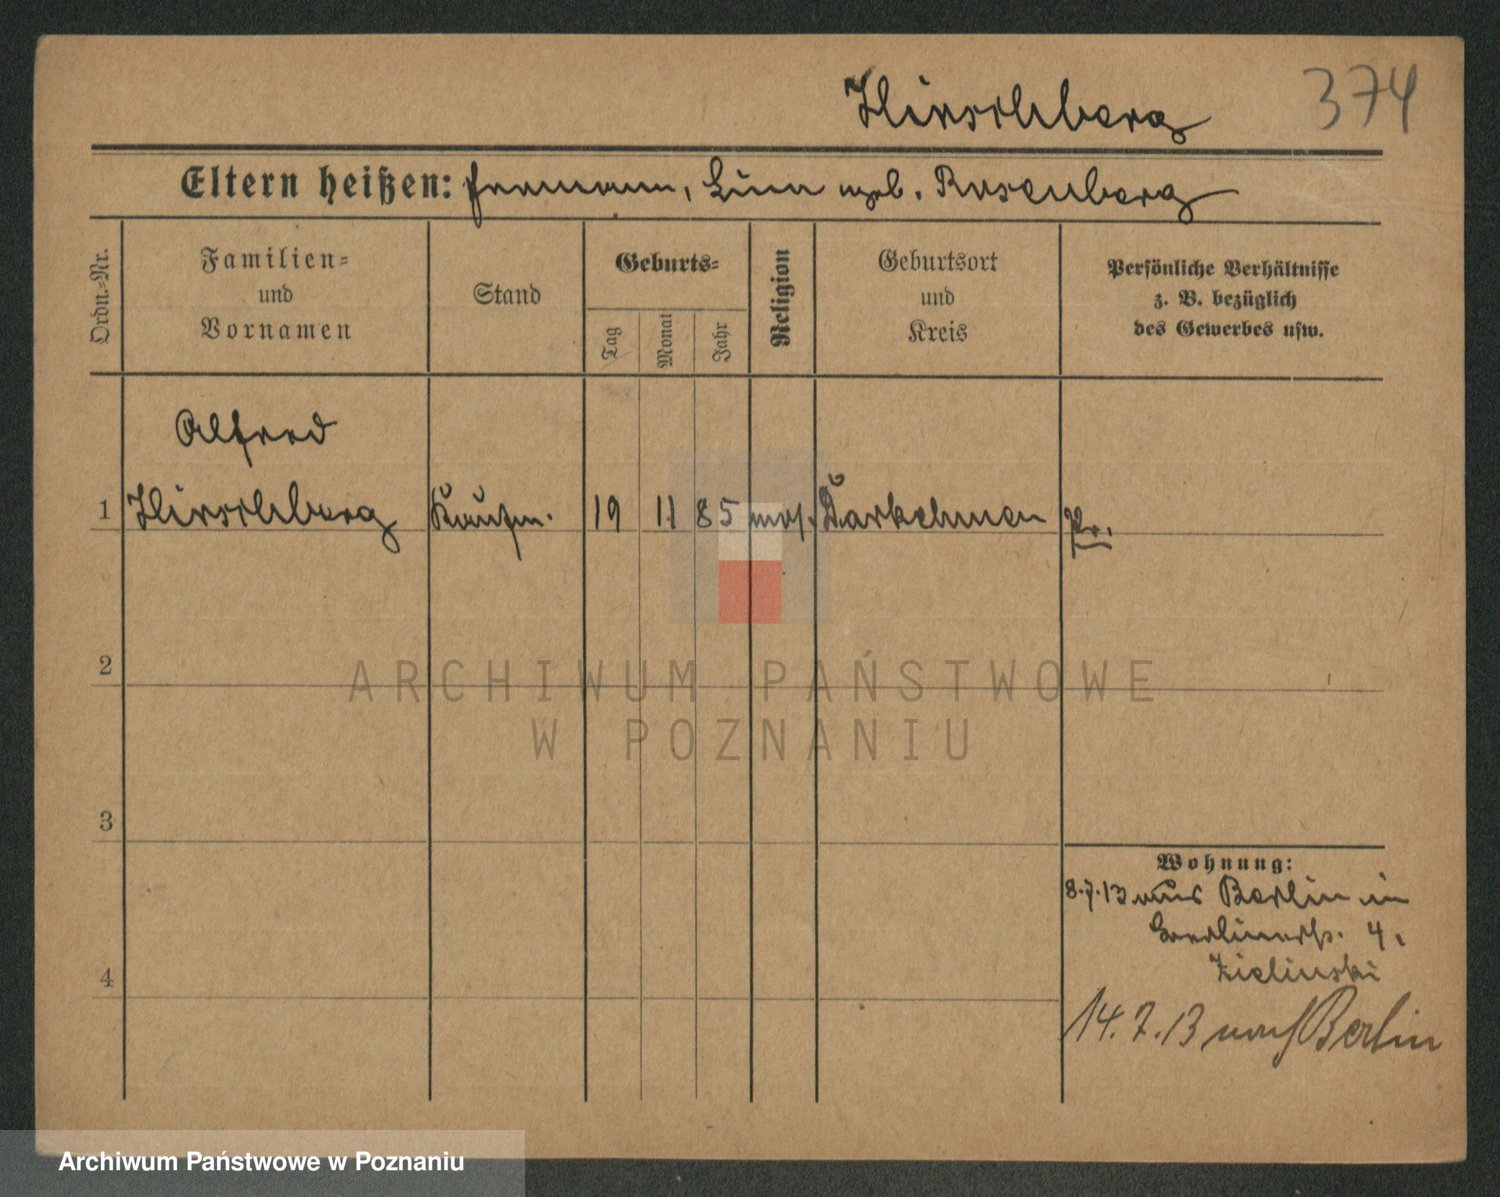 Hirschberg 374
Eltern heißen: Hermann, Lina geb. Rosenberg
Ordn.-Nr.
Familien-
und
Vornamen
Stand
Geburts-
Tag
Monat
Jahr
Religion
Geburtsort
und
Kreis
Persönliche Verhältnisse
z. B. bezüglich
des Gewerbes usw.
Alfred
1 Hirschberg Kaufm. 19 11 85 mos. Darkehmen Pr.
2
ARCHIWUM PAŃSTWOWE
W POZNANIU
3
Wohnung:
8.7.13 aus Berlin in
Berlinerstr. 4,
Zielinski
4
14.7.13 nach Berlin
Archiwum Państwowe w Poznaniu